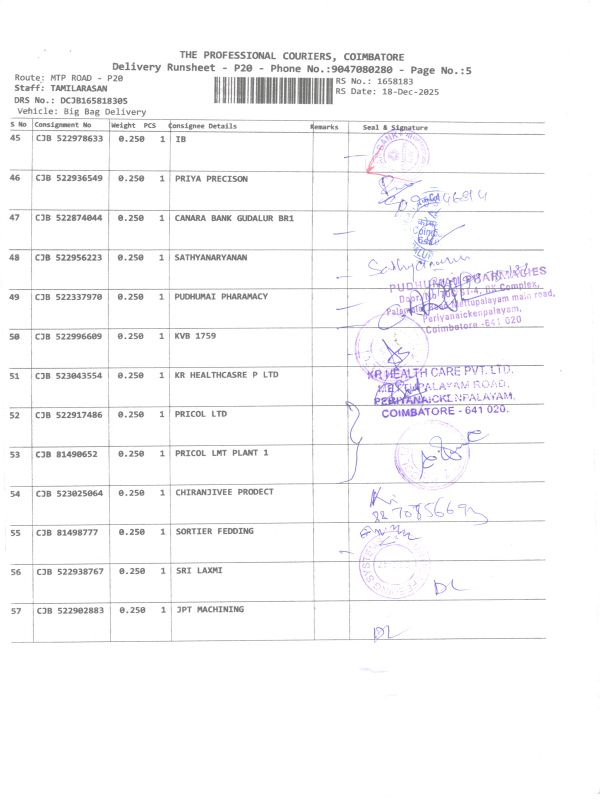 THE PROFESSIONAL COURIERS, COIMBATORE
Delivery Runsheet - P20 - Phone No.:9047080280 - Page No.:5
Route: MTP ROAD - P20
RS No.: 1658183
Staff: TAMILARASAN
RS Date: 18-Dec-2025
DRS No.: DCJB165818305
Vehicle: Big Bag Delivery
S No Consignment No Weight PCS Consignee Details Remarks Seal & Signature
45 CJB 522978633 0.250 1 IB
46 CJB 522936549 0.250 1 PRIYA PRECISON
47 CJB 522874044 0.250 1 CANARA BANK GUDALUR BR1
48 CJB 522956223 0.250 1 SATHYANARYANAN
49 CJB 522337970 0.250 1 PUDHUMAI PHARAMACY
PUDHUMAI PHARMACIES
Periyanaickenpalayam,
Coimbatore -641 020
50 CJB 522996609 0.250 1 KVB 1759
51 CJB 523043554 0.250 1 KR HEALTHCASRE P LTD
KR HEALTH CARE PVT. LTD.
METTUPALAYAM ROAD,
PERIYANAICKENPALAYAM,
COIMBATORE - 641 020.
52 CJB 522917486 0.250 1 PRICOL LTD
53 CJB 81490652 0.250 1 PRICOL LMT PLANT 1
54 CJB 523025064 0.250 1 CHIRANJIVEE PRODECT
55 CJB 81498777 0.250 1 SORTIER FEDDING
56 CJB 522938767 0.250 1 SRI LAXMI
DL
57 CJB 522902883 0.250 1 JPT MACHINING
DL